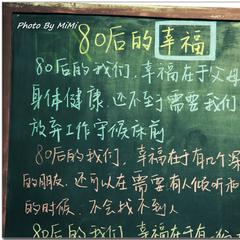 Photo By MiMi
80后的幸福
80后的我们,幸福在于父母
身体健康,还不至于需要我们
放弃工作守候床前
80后的我们,幸福在于有几个深
的朋友,还可以在需要有人倾听
的时候,不会找不到人
80后的我们,幸福在于有